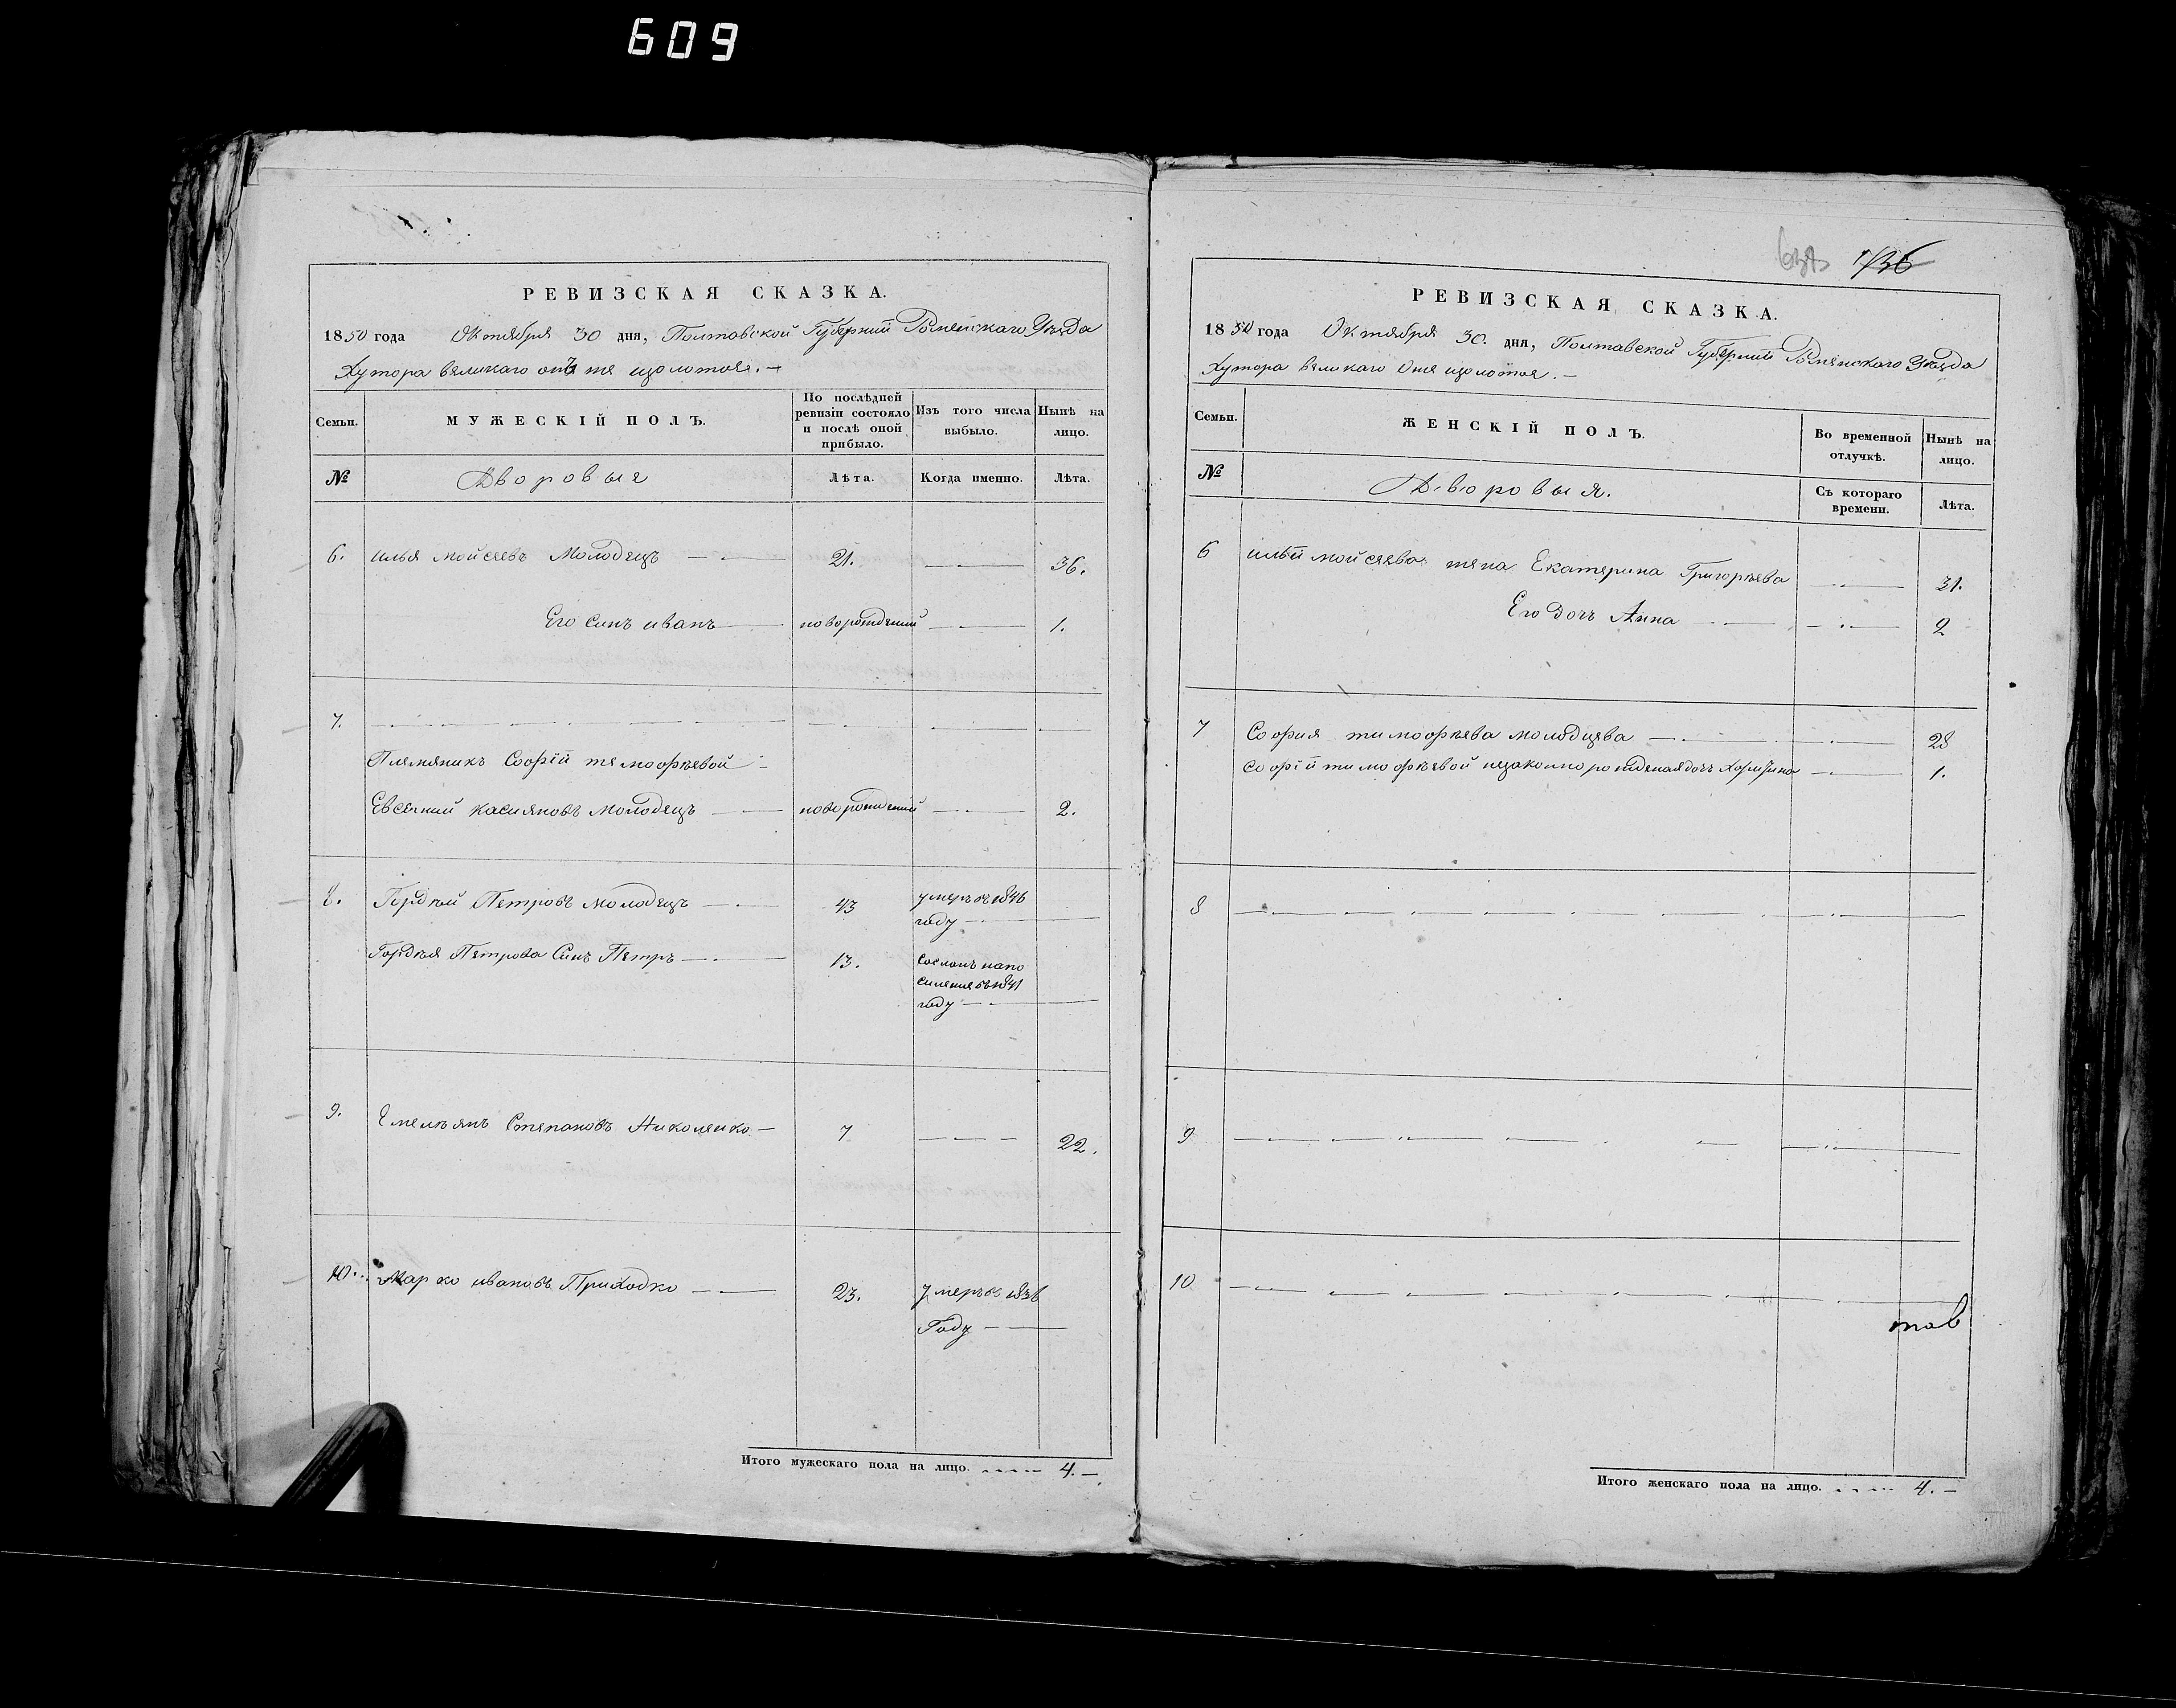 609
РЕВИЗСКАЯ СКАЗКА.
1850 года Октября 30 дня, Полтавской Губернии Роменскаго Уезда
Хутора великаго
Семьи.
МУЖЕСКІЙ ПОЛЪ.
По послѣдней ревизіи состояло и послѣ оной прибыло.
Изъ того числа выбыло.
Нынѣ на лицо.
№
Дворовые
Лѣта.
Когда именно.
Лѣта.
6. илья мойсеевъ Молодецъ 21. 36.
Его синъ иванъ новорождений 1.
7.
Племяникъ Софіи тимофѣевой
Евсегний касияновъ Молодецъ новорожденій 2.
8. Гордѣй Петровъ Молодецъ 43 умеръ въ 1846
году
Гордѣя Петрова Синъ Петръ 13. Сосланъ на по
силение въ 1841
году
9. Емельянъ Степановъ Николенко 7 22.
10. Марко ивановъ Приходко 23. Умеръ въ 1836
Году
Итого мужескаго пола на лицо. 4.
736
РЕВИЗСКАЯ СКАЗКА.
1850 года Октября 30. дня, Полтавской Губернии Роменскаго Уезда
Хутора великаго
Семьи.
ЖЕНСКІЙ ПОЛЪ.
Во временной отлучкѣ.
Нынѣ на лицо.
№
Дворовыя.
Съ котораго времени.
Лѣта.
6 ильи мойсеева жена Екатерина Григорѣева 31.
Его дочъ Анна 2
7 София тимофѣева молодцева 28
Софіи тимофѣевой незаконно рожденая дочъ 1.
8
9
10
тов
Итого женскаго пола на лицо. 4.